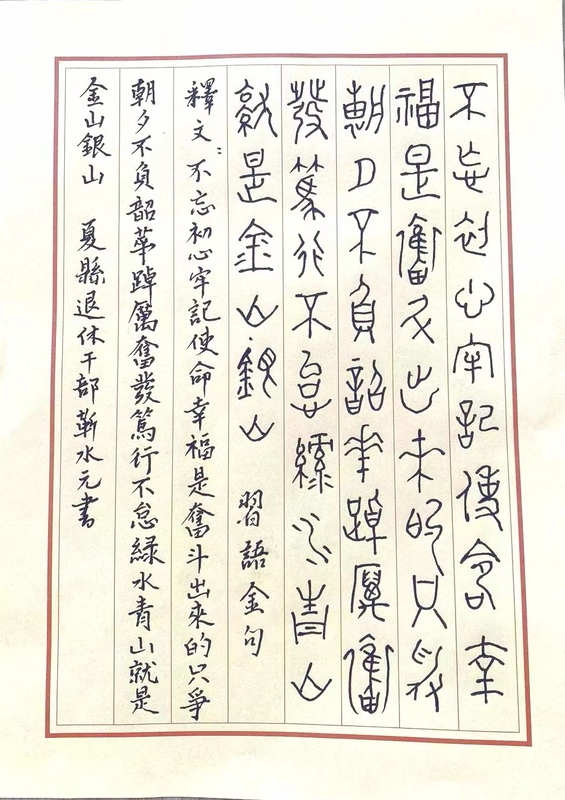 不忘初心牢記使命幸
福是奮鬥出來的只爭
朝夕不負韶華踔厲奮
發篤行不怠綠水青山
就是金山銀山 習語金句
釋文：不忘初心牢記使命幸福是奮斗出來的只爭
朝夕不負韶華踔厲奮發篤行不怠綠水青山就是
金山銀山 夏縣退休干部靳水元書